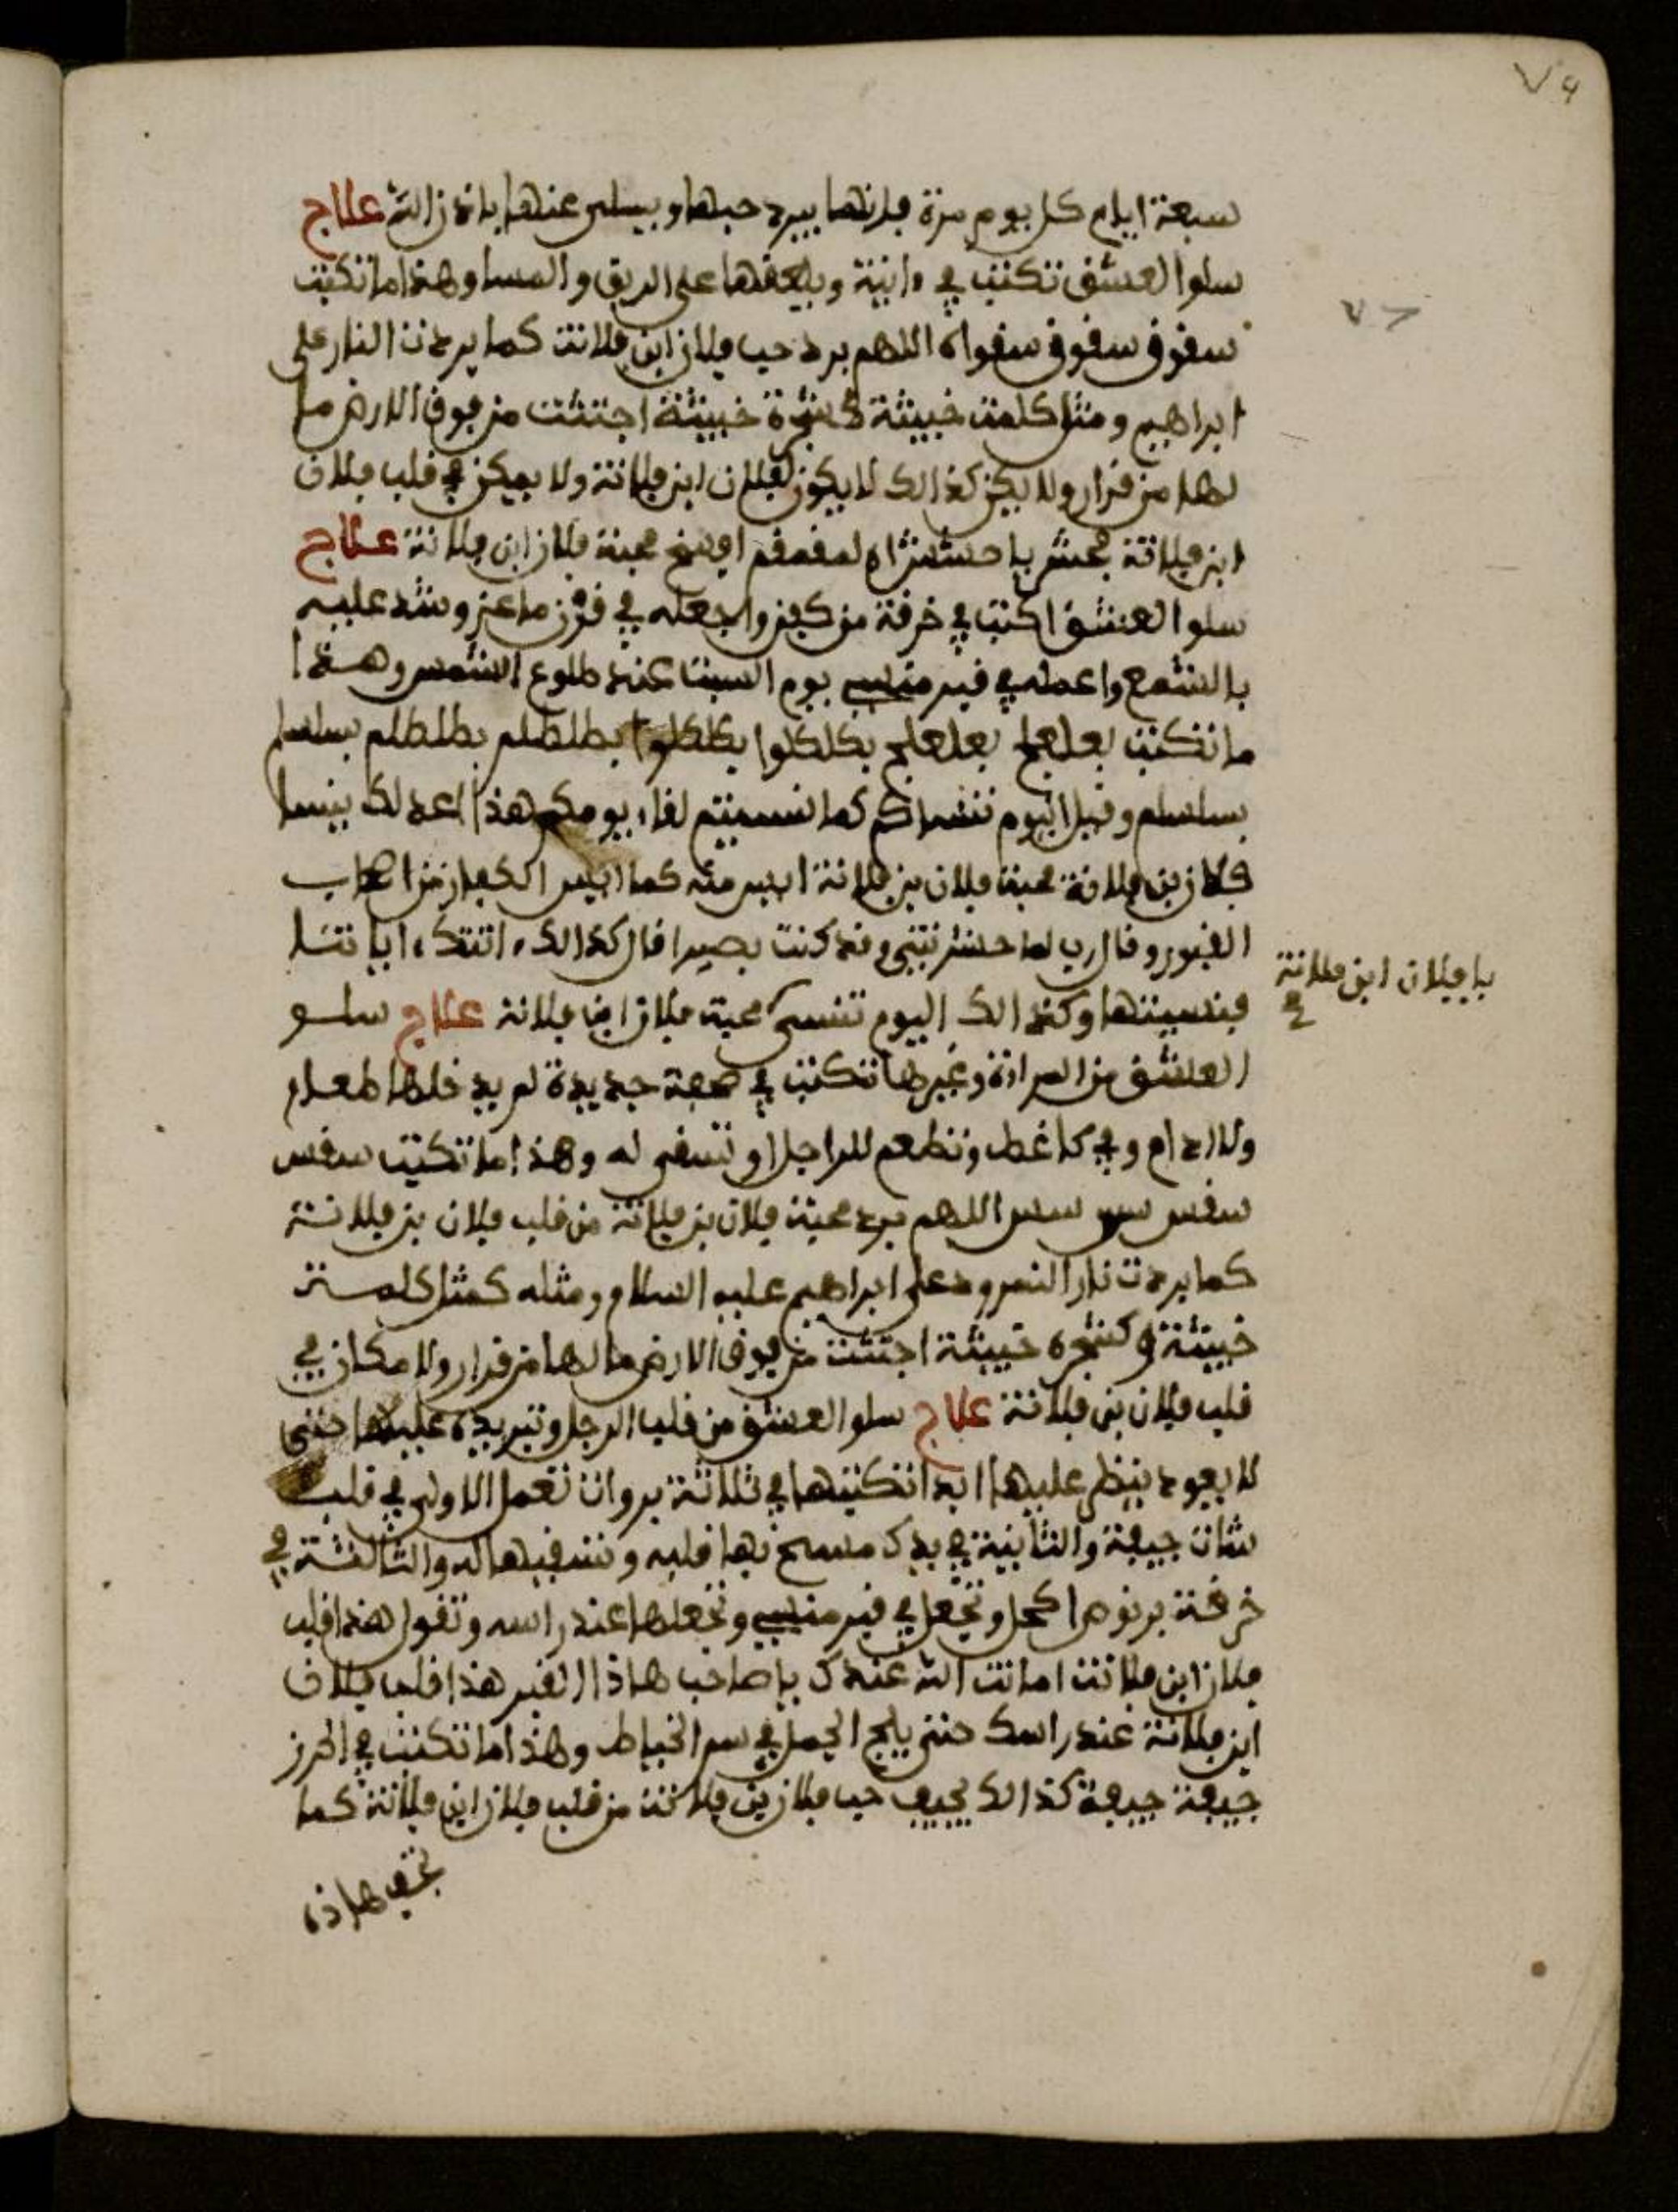 سبعة ايام كل يوم مرة فانها يبرد حبها ويسلى عنها باذن الله علاج
سلوا العشق تكتب في ءانية ويلعقها على الريق والمسا وهذا ما تكتب
سفوف سفوف سفواه اللهم برد حب فلان ابن فلانة كما بردت النار على
ابراهيم ومثل كلمة خبيثة كشجرة خبيثة اجتثت من فوق الارض ما
لها من قرار ولا يكن كذالك لا يكون لفلان ابن فلانة ولا يمكن في قلب فلان
ابن فلانة محبة فلان ابن فلانة علاج
سلوا العشق اكتب في خرقة من كفن واجعله في قرن ماعز وشد عليه
بالشمع واعمله في قبر منسي يوم السبت عند طلوع الشمس وهذا
ما تكتب بعلعلج بعلعلج بكلكلوا بكلكلوا بطلطلم بطلطلم بسلسلم
بسلسلم وقيل اليوم ننساكم كما نسيتم لقاء يومكم هذا كذلك ينسا
فلان بن فلانة محبة فلان بن فلانة ايس منه كما ايس الكفار من اصحاب
القبور وقال رب لما حشرتني وقد كنت بصيرا قال كذالك اتتك ءاياتنا
فنسيتها وكذالك اليوم تنسى محبة فلان ابن فلانة علاج سلو
يا فلان ابن فلانة
العشق من المراة وغيرها تكتب في صحفة جديدة لم يدخلها طعام
ولا ادام وفي كاغط وتطعم للراجل او تسقى له وهذا ما تكتب سفس
سفس سس سس اللهم برد محبة فلان بن فلانة من قلب فلان بن فلانة
كما بردت نار النمرود على ابراهيم عليه السلام ومثله كمثل كلمة
خبيثة كشجرة خبيثة اجتثت من فوق الارض ما لها من قرار ولا مكان في
قلب فلان بن فلانة علاج سلو العشق من قلب الرجل وتبريده عليها حتى
لا يعود ينظر عليها ابدا تكتبها في ثلاثة بروات تعمل الاولى في قلب
شات جيفة والثانية في يدك مسح بها قلبه وتسقيها له والثالثة في
خرقة برنوص اكحل وتجعل في قبر منسي وتجعلها عند راسه وتقول هذا قلب
فلان ابن فلانة امانت الله عندك يا صاحب هاذا القبر هذا قلب فلان
ابن فلانة عند راسك حتى يلج الجمل في سم الخياط وهذا ما تكتب في الحرز
جيفة جيفة كذالك يجيف حب فلان بن فلانة من قلب فلان ابن فلانة كما
تجيف هاذه